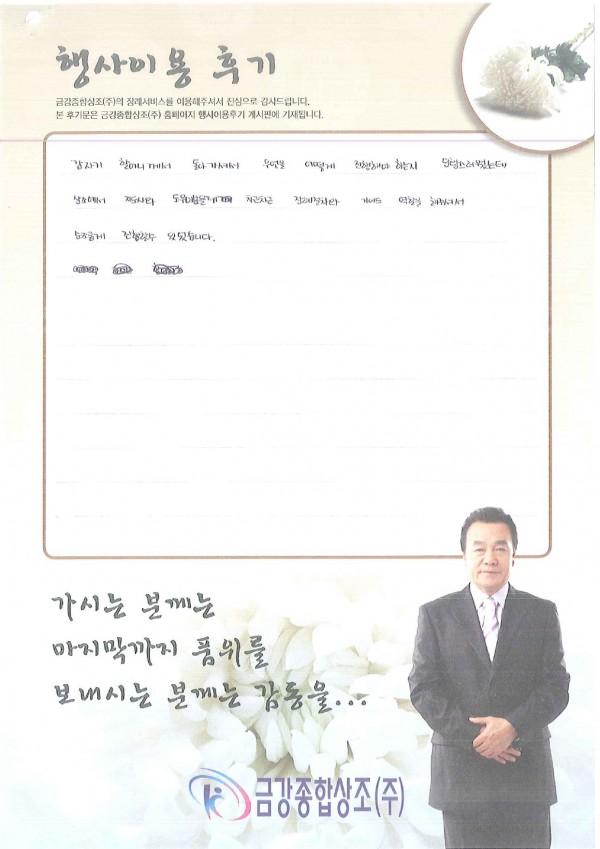 행사이용 후기
금강종합상조(주)의 장례서비스를 이용해주셔서 진심으로 감사드립니다.
본 후기문은 금강종합상조(주) 홈페이지 행사이용후기 게시판에 기재됩니다.
갑자기 할머니께서 돌아가셔서 무언를 어떻게 진행해야 하는지 당황스러웠는데
상조에서 지도사와 도우미분들께서 차근차근 장례절차와 가이드 역할을 해주셔서
순조롭게 진행할수 있었습니다.
가시는 분께는
마지막까지 품위를
보내시는 분께는 감동을...
금강종합상조(주)